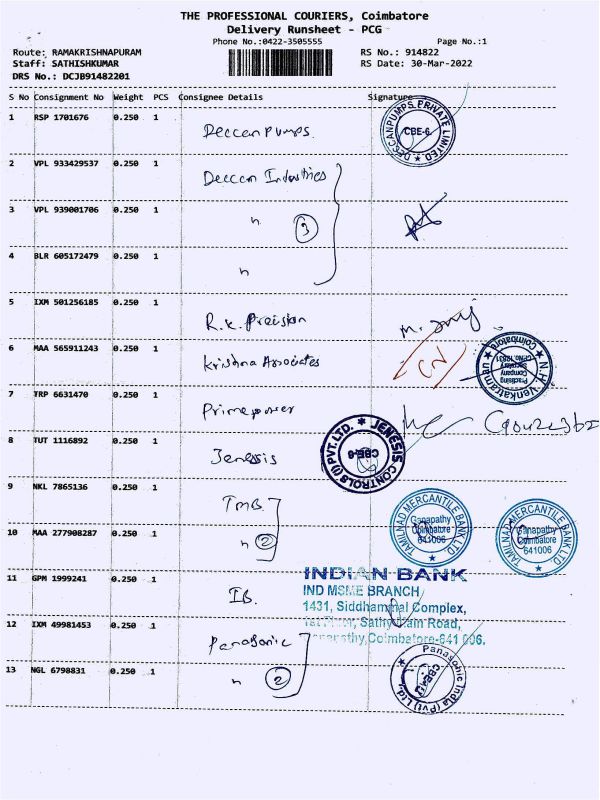 THE PROFESSIONAL COURIERS, Coimbatore
Delivery Runsheet - PCG
Phone No.:0422-3505555 Page No.:1
Route: RAMAKRISHNAPURAM RS No.: 914822
Staff: SATHISHKUMAR RS Date: 30-Mar-2022
DRS No.: DCJB91482201
S No Consignment No Weight PCS Consignee Details Signature
1 RSP 1701676 0.250 1 Deccan Pumps. DECCANPUMPS PRIVATE LIMITED CBE-6.
2 VPL 933429537 0.250 1 Deccan Industries
3 VPL 939001706 0.250 1 " 3
4 BLR 605172479 0.250 1 "
5 IXM 501256185 0.250 1 R.K. Precision
6 MAA 565911243 0.250 1 Krishna Associates N.H. Venkatraman Practising Company Secretary Coimbatore
7 TRP 6631470 0.250 1 Primepower
8 TUT 1116892 0.250 1 Jenesis JENESIS CONTROLS (I) PVT. LTD. CBE-6
9 NKL 7865136 0.250 1 TMB.
10 MAA 277908287 0.250 1 " 2
TAMILNAD MERCANTILE BANK LTD Ganapathy Coimbatore 641006
TAMILNAD MERCANTILE BANK LTD Ganapathy Coimbatore 641006
11 GPM 1999241 0.250 1 IB.
INDIAN BANK
IND MSME BRANCH
1431, Siddhammal Complex,
1st Floor, Sathy Road,
Ganapathy, Coimbatore-641 006.
12 IXM 49981453 0.250 1 Panasonic
13 NGL 6798831 0.250 1 " 2 Panasonic India (Pvt) Ltd.